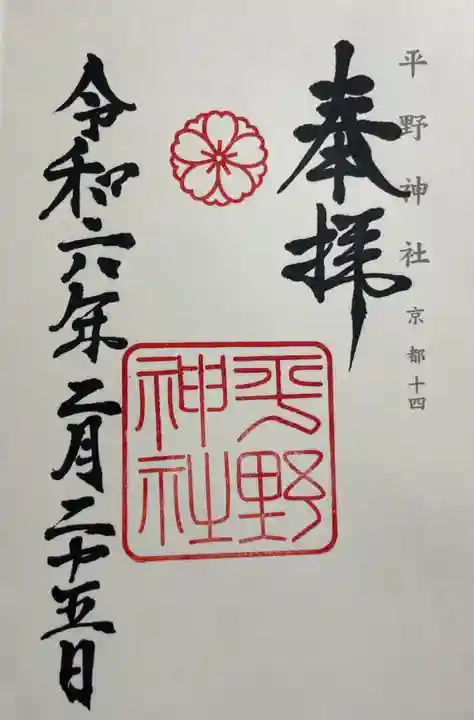 平野神社 京都十四
奉拝
平野
神社
令和六年二月二十五日